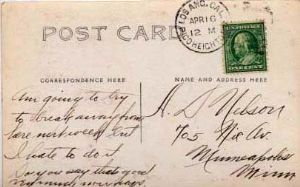 LOS ANG. CAL.
APR 16
12 M
PICO HEIGHTS
POST CARD
CORRESPONDENCE HERE
NAME AND ADDRESS HERE
Am going to try
to break away from
here next week but
I hate to do it
Do you say that good
A. S. Nelson
705 Ave
Minneapolis
Minn